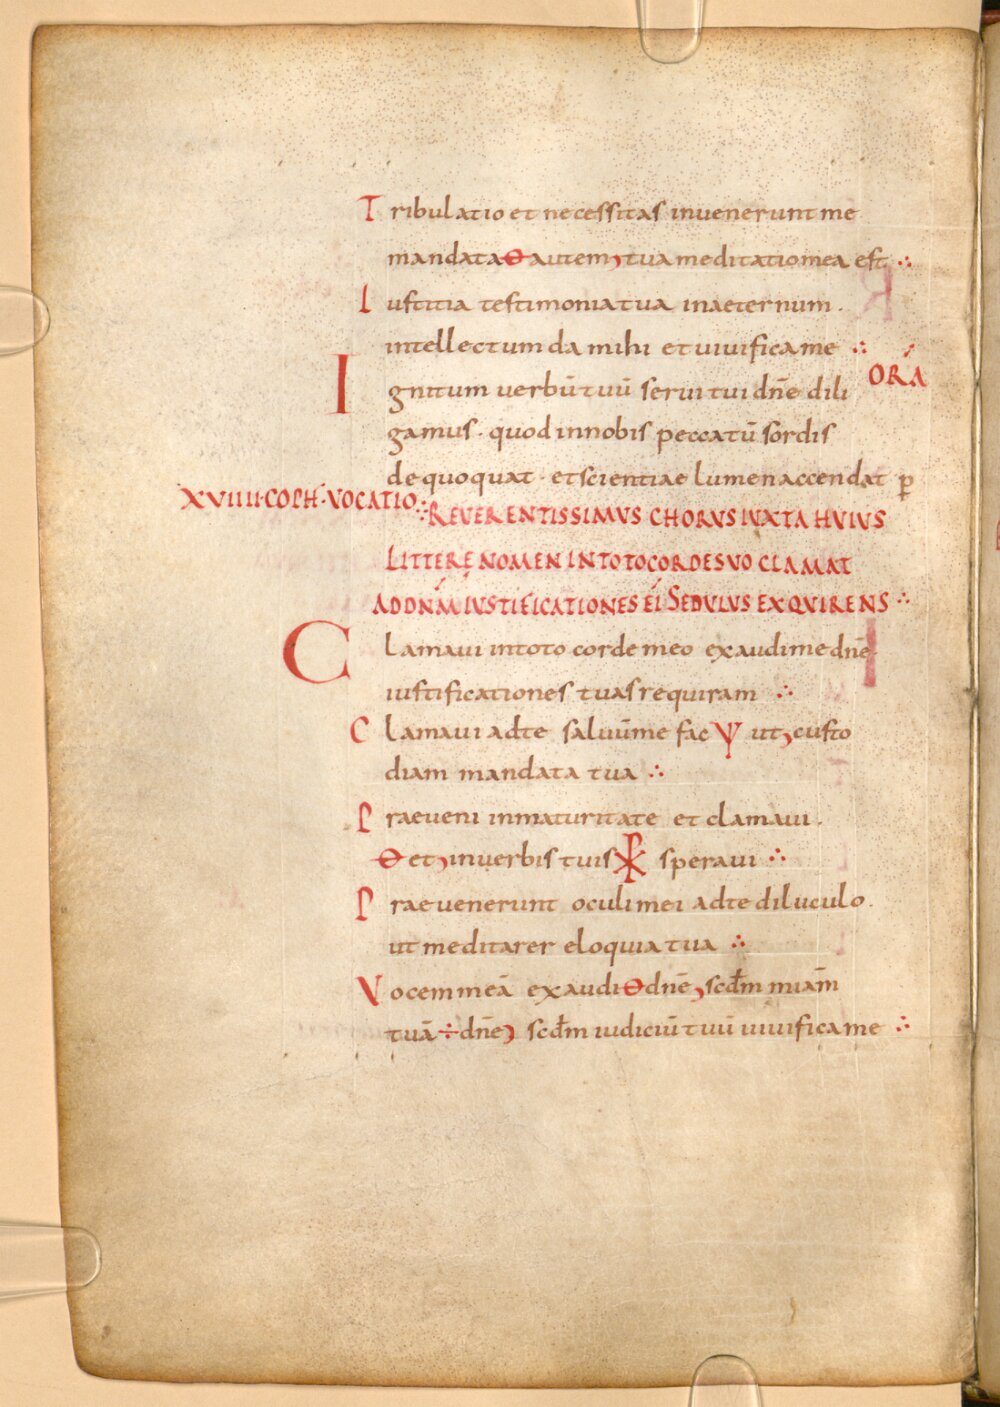 Tribulatio et necessitas invenerunt me
mandata ɵ autem ɔ tua meditatio mea est ∴
Iustitia testimonia tua inaeternum .
intellectum da mihi et uiuifica me ∴
ORÁ
Ignitum uerbū tuū serui tui dn̄e dili
gamus · quod innobis peccatū sordis
dequoquat · et scientiae lumen accendat p̱
XVIIII · COPH · VOCATIO ∴ REUERENTISSIMVS CHORVS IUXTA HVIVS
LITTERE NOMEN IN TOTO CORDE SVO CLAMAT
AD DN̄M IVSTIFICATIONES EI SEDVLVS EXQVIRENS ∴
Clamaui intoto corde meo exaudi me dn̄e
iustificationes tuas requiram ∴
Clamaui adte saluū me fac ψ ut ɔ custo
diam mandata tua ∴
Praeueni inmaturitate et clamaui .
ɵ et ɔ inuerbis tuis ⳩ speraui ∴
Praeuenerunt oculi mei adte diluculo .
ut meditarer eloquia tua ∴
Vocem meā exaudi ɵ dn̄e ɔ scd̄m miam̄
tuā ÷ dn̄e ɔ scd̄m iudiciū tuū uiuifica me ∴